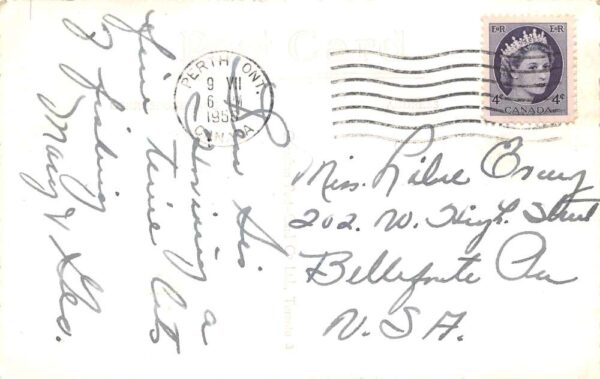 Dear Sis
Having a
fine time lots
of fishing
Mary & Geo.
PERTH ONT.
9 VII
6 PM
195
CANADA
E R E R
4¢ 4¢
CANADA
Miss
202. W. High. Street
Bellefonte Pa
U.S.A.
Post Card